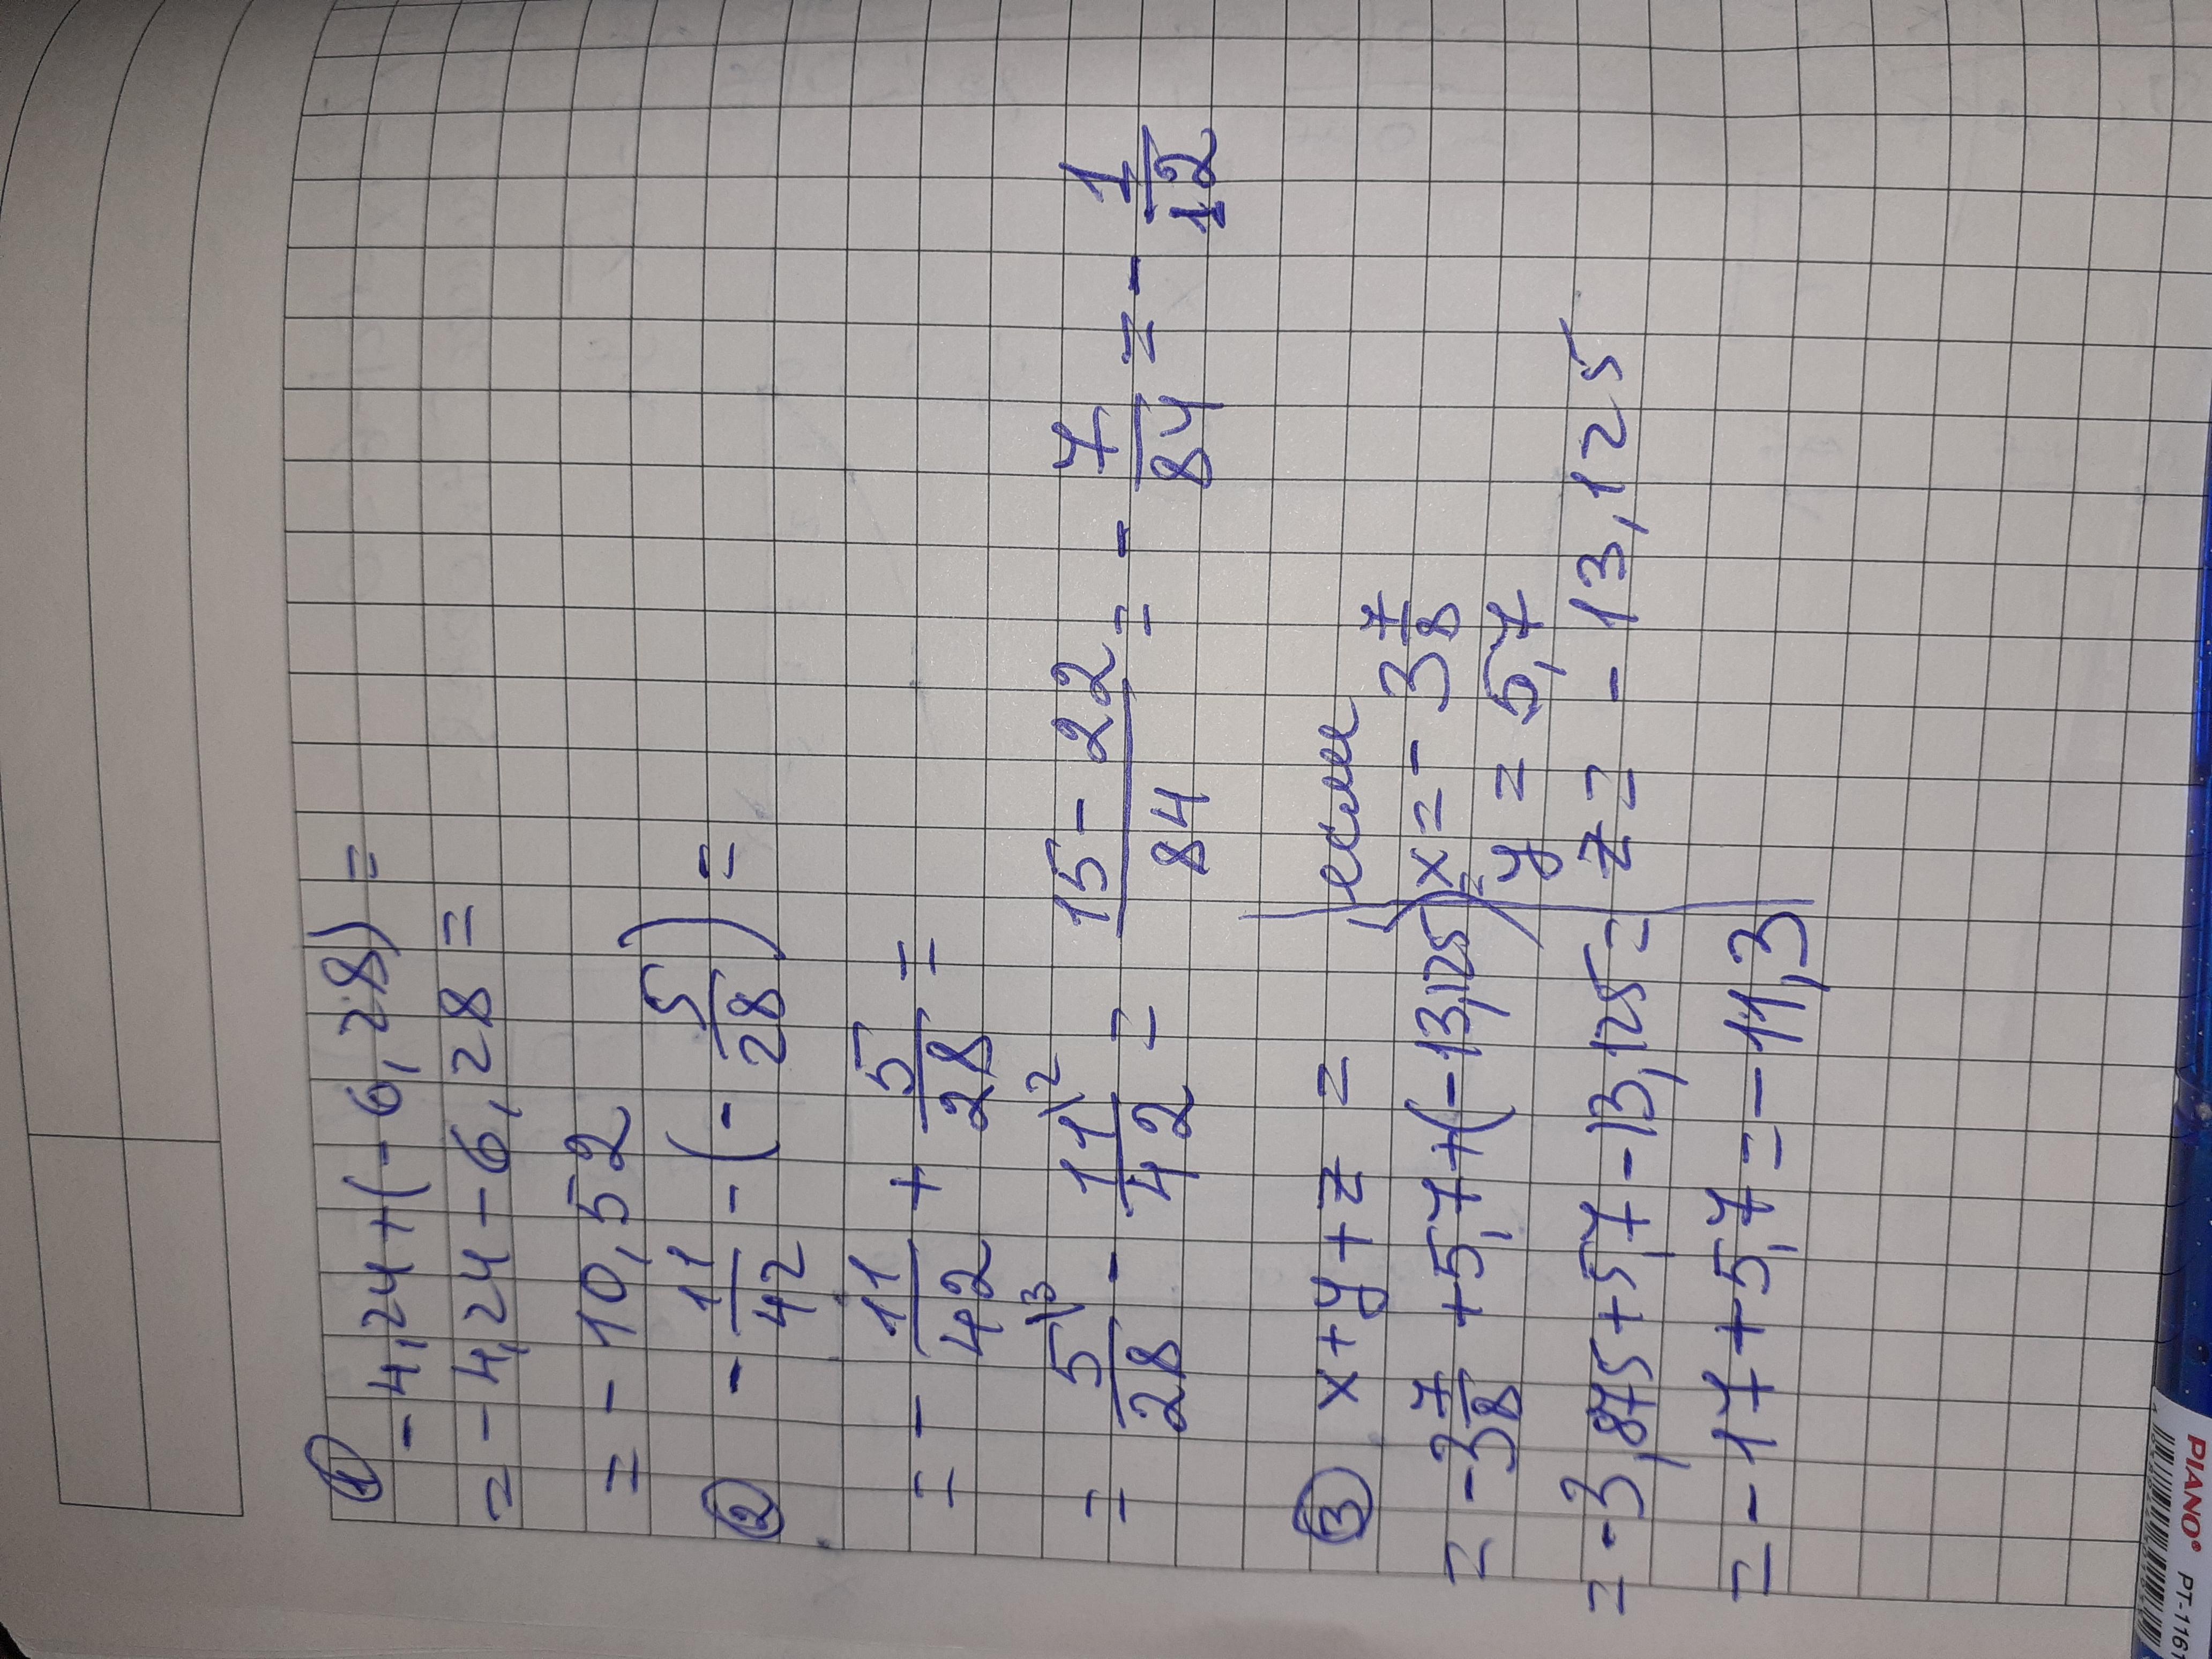 ① -4,24+(-6,28)=
= -4,24-6,28=
= -10,52
② - 11/42 - (- 5/28) =
= - 11/42 + 5/28 =
= 5\3/28 - 11\2/42 = 15-22/84 = - 7/84 = - 1/12
③ x+y+z = если
= -3 7/8 +5,7+(-13,125)= x=-3 7/8
y = 5,7
= -3,875+5,7-13,125= z = -13,125
= -17+5,7=-11,3
PIANO PT-1161